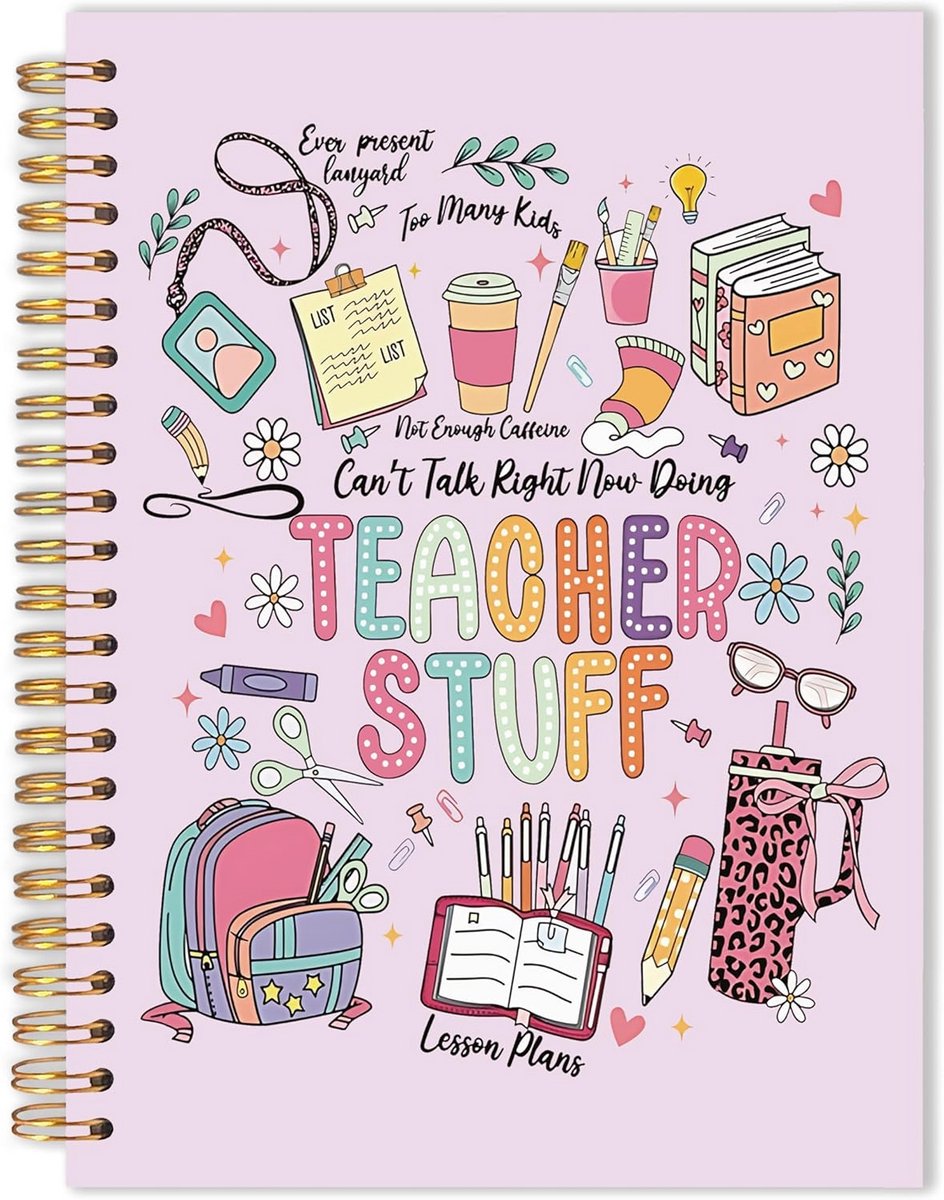 Ever present
lanyard
Too Many Kids
LIST
LIST
Not Enough Caffeine
Can't Talk Right Now Doing
TEACHER
STUFF
Lesson Plans